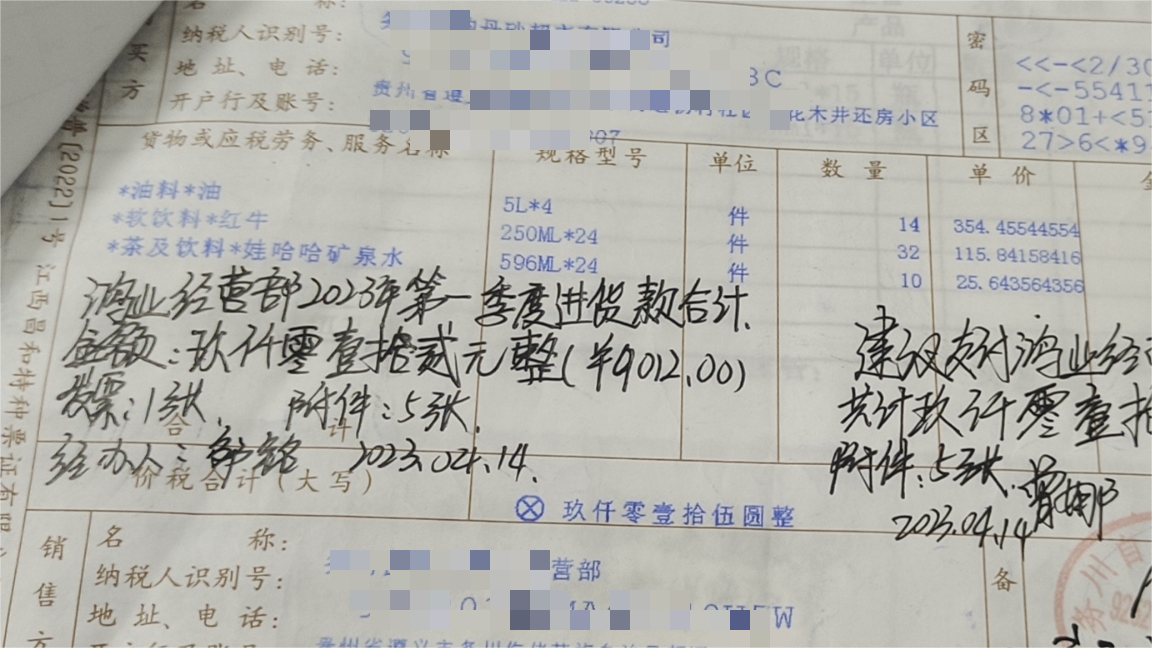 名 称:
买
方
纳税人识别号:
公司
地 址、电 话:
3C
开户行及账号:
贵州省遵
花木井还房小区
密
码
区
<<-<2/30
-<-55411
8*01+<5
27>6<*9
货物或应税劳务、服务名称 规格型号 单位 数 量 单 价
*油料*油 5L*4 件 14 354.45544554
*软饮料*红牛 250ML*24 件 32 115.84158416
*茶及饮料*娃哈哈矿泉水 596ML*24 件 10 25.643564356
〔2022〕1号 江西昌和特种票证有限
鸿业经营部2023年第一季度进货款合计
金额:玖仟零壹拾贰元整(¥9012.00)
发票:1张. 附件:5张.
经办人: 2023.04.14.
建议支付鸿业经
共计玖仟零壹拾
附件:5张.
2023.04.14
合 计
价税合计(大写)
ⓧ 玖仟零壹拾伍圆整
销
售
方
名 称:
营部
纳税人识别号:
地 址、电 话:
开户行及账号:
备